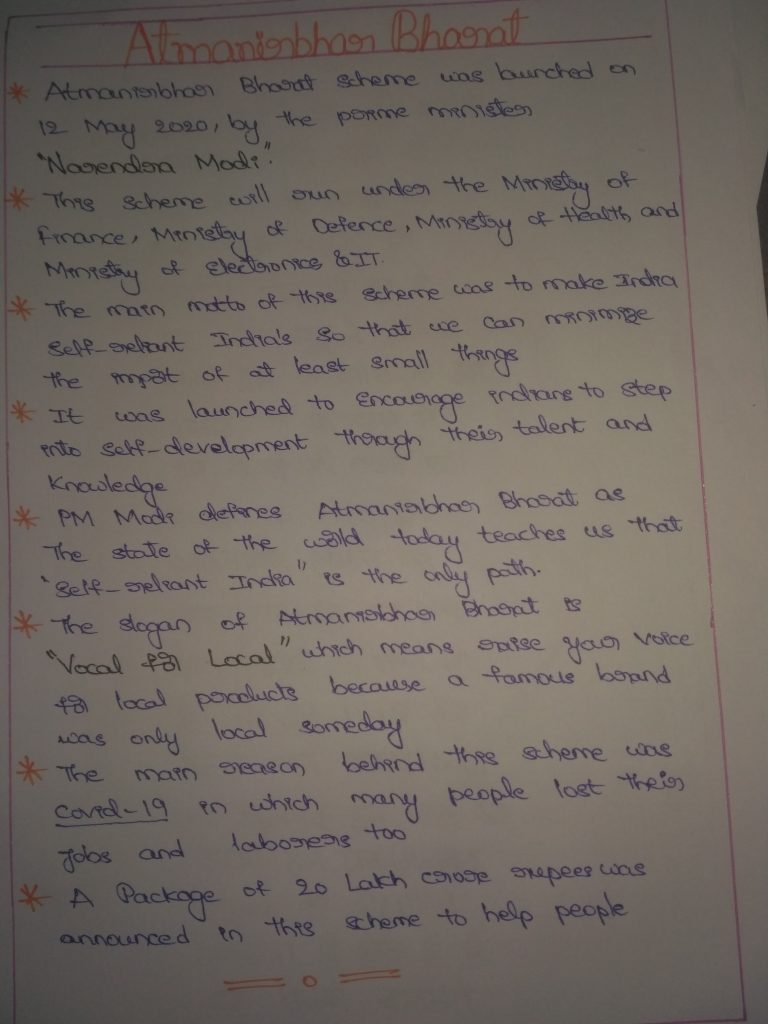 Atmanirbhar Bharat
* Atmanirbhar Bharat scheme was launched on
12 May 2020, by the prime minister
"Narendra Modi".
* This scheme will run under the Ministry of
Finance, Ministry of Defence, Ministry of Health and
Ministry of Electronics & IT.
* The main motto of this scheme was to make India
self-reliant India's so that we can minimize
the import of at least small things
* It was launched to Encourage indians to step
into self-development through their talent and
Knowledge
* PM Modi defines Atmanirbhar Bharat as
The state of the world today teaches us that
"Self-reliant India" is the only path.
* The slogan of Atmanirbhar Bharat is
"Vocal for Local" which means raise your voice
for local products because a famous brand
was only local someday
* The main reason behind this scheme was
covid-19 in which many people lost their
jobs and laborers too
* A Package of 20 Lakh crore rupees was
announced in this scheme to help people